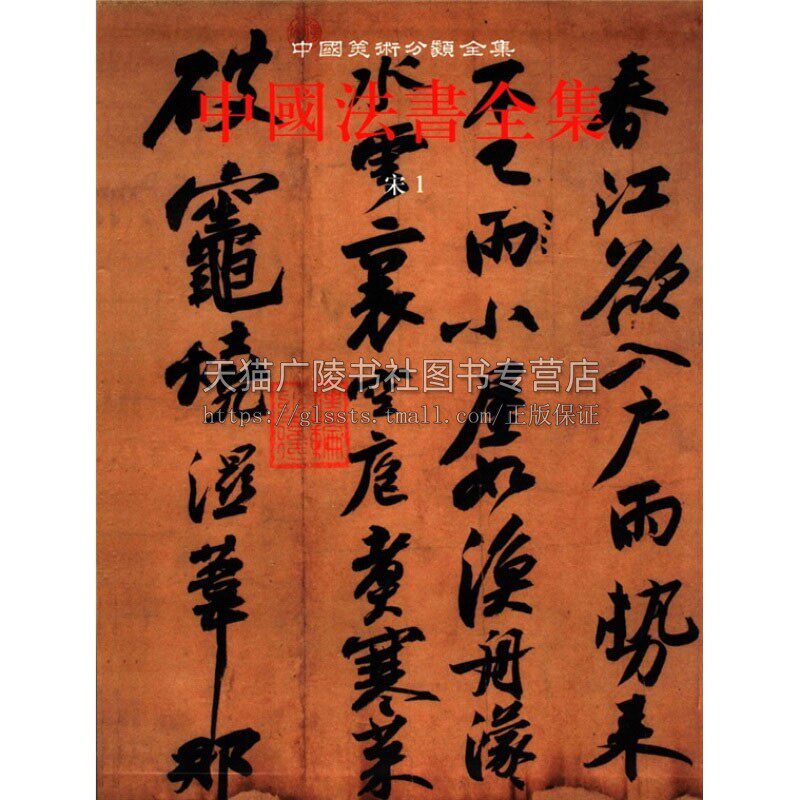 中國美術分類全集
中國法書全集
宋 1
春江欲入戶雨勢来
不已雨小屋如漁舟濛
水雲裏空庖煑寒菜
破竈燒濕葦那
天猫广陵书社图书专营店
https://glssts.tmall.com/正版保证